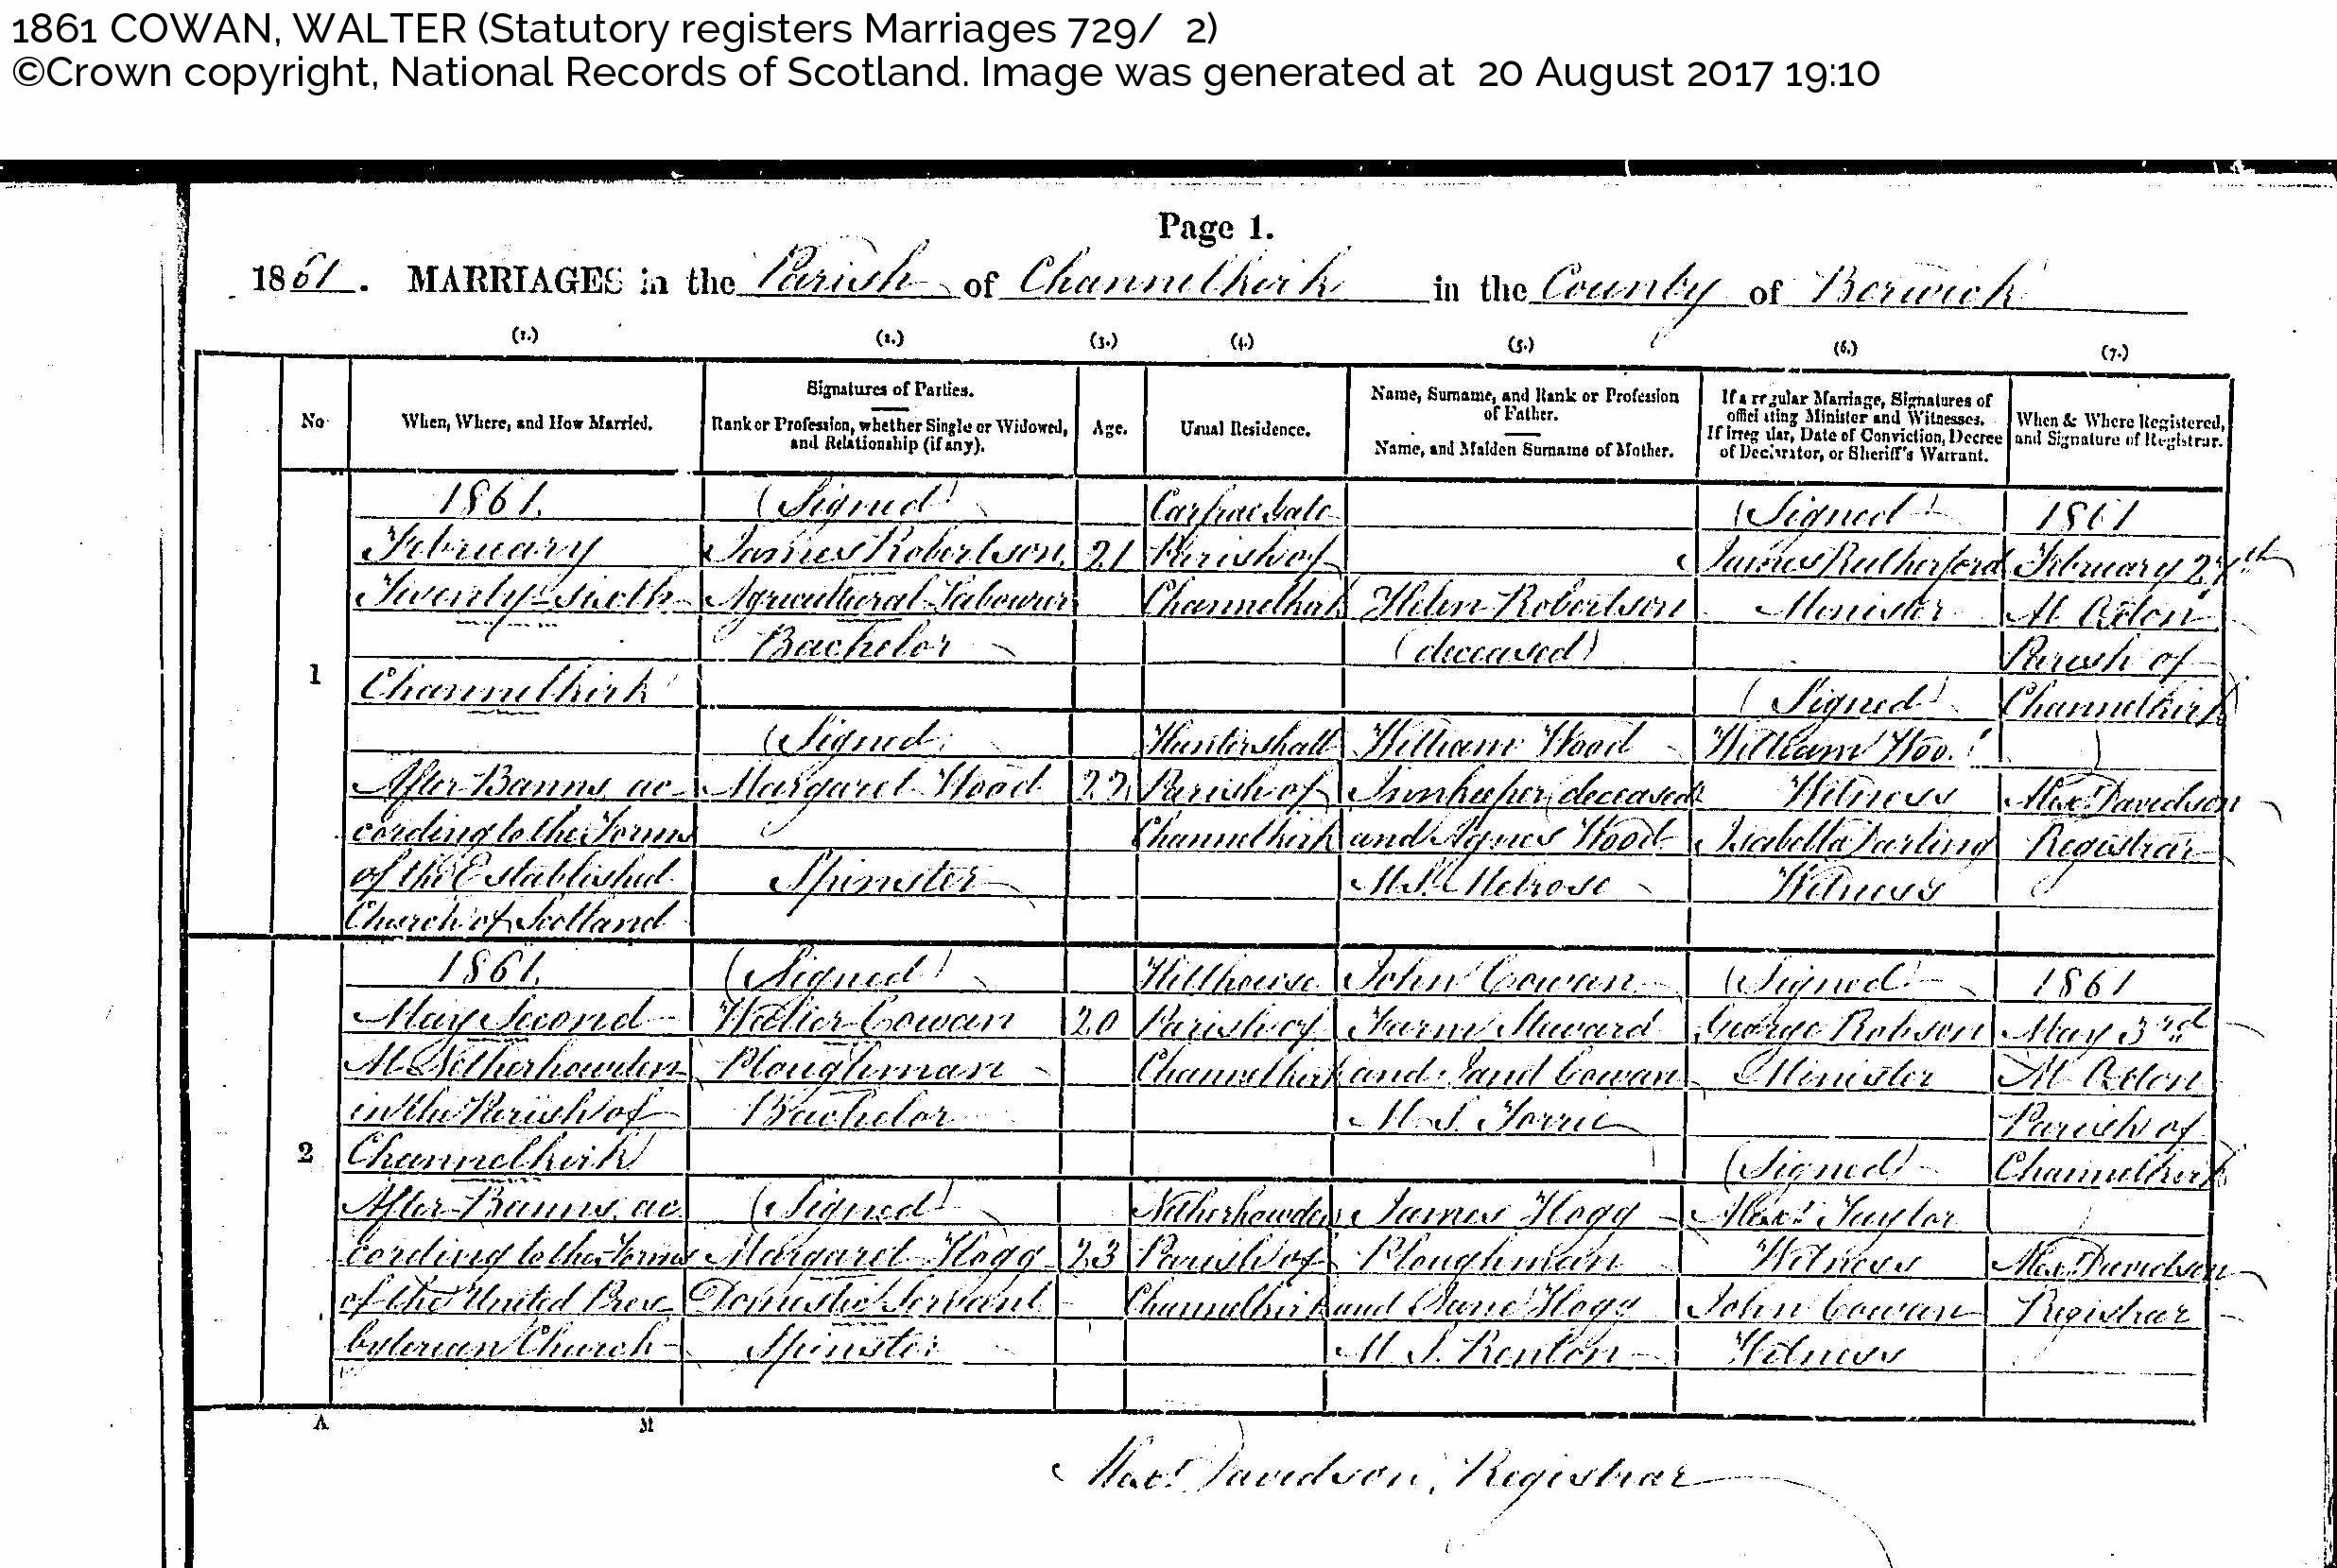 1861 COWAN, WALTER (Statutory registers Marriages 729/ 2)
©Crown copyright, National Records of Scotland. Image was generated at 20 August 2017 19:10
Page 1.
1861. MARRIAGES in the Parish of Channelkirk in the County of Berwick
(1.) (2.) (3.) (4.) (5.) (6.) (7.)
No
When, Where, and How Married.
Signatures of Parties.
Rank or Profession, whether Single or Widowed,
and Relationship (if any).
Age.
Usual Residence.
Name, Surname, and Rank or Profession
of Father.
Name, and Maiden Surname of Mother.
If a regular Marriage, Signatures of
officiating Minister and Witnesses.
If irregular, Date of Conviction, Decree
of Declarator, or Sheriff's Warrant.
When & Where Registered,
and Signature of Registrar.
1
1861.
February
Twenty-sixth
Channelkirk
After Banns ac
cording to the Forms
of the Established
Church of Scotland
(Signed)
James Robertson
Agricultural Labourer
Bachelor
(Signed)
Margaret Wood
Spinster
21
22
Parish of
Channelkirk
Huntershall
Parish of
Channelkirk
Helen Robertson
(deceased)
William Wood
Innkeeper (deceased)
and Agnes Wood
M.S. Melrose
(Signed)
James Rutherford
Minister
(Signed)
William Wood
Witness
Isabella Darling
Witness
1861
February 27th
At Oxton
Parish of
Channelkirk
Alexr Davidson
Registrar
2
1861.
May Second
At Netherhowden
in the Parish of
Channelkirk
After Banns ac
cording to the Forms
of the United Pres
byterian Church
(Signed)
Walter Cowan
Ploughman
Bachelor
(Signed)
Margaret Hogg
Domestic Servant
Spinster
20
23
Hillhouse
Parish of
Channelkirk
Netherhowden
Parish of
Channelkirk
John Cowan
Farm Steward
and Janet Cowan
M.S.
James Hogg
Ploughman
and Jane Hogg
M.S. Renton
(Signed)
George Robson
Minister
(Signed)
Alexr Taylor
Witness
John Cowan
Witness
1861
May 3rd
At Oxton
Parish of
Channelkirk
Alexr Davidson
Registrar
A M
Alexr Davidson, Registrar